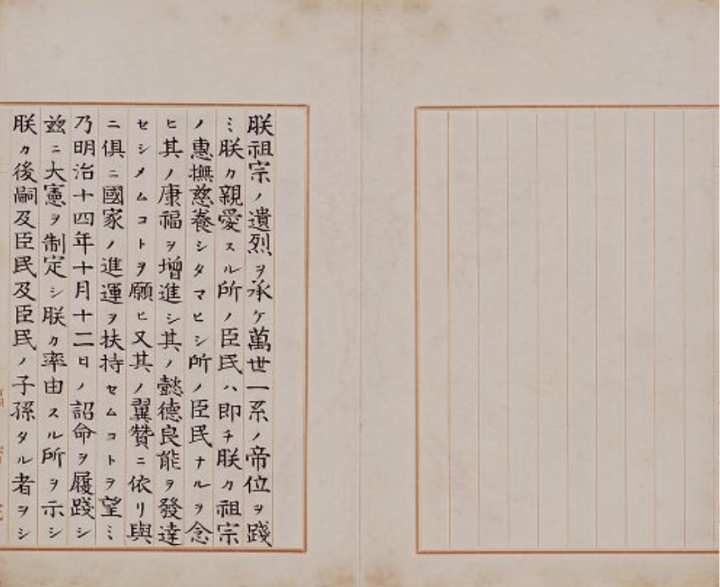 朕祖宗ノ遺烈ヲ承ケ萬世一系ノ帝位ヲ踐
ミ朕カ親愛スル所ノ臣民ハ即チ朕カ祖宗
ノ惠撫慈養シタマヒシ所ノ臣民ナルヲ念
ヒ其ノ康福ヲ增進シ其ノ懿德良能ヲ發達
セシメムコトヲ願ヒ又其ノ翼贊ニ依リ與
ニ俱ニ國家ノ進運ヲ扶持セムコトヲ望ミ
乃明治十四年十月十二日ノ詔命ヲ履踐シ
茲ニ大憲ヲ制定シ朕カ率由スル所ヲ示シ
朕カ後嗣及臣民及臣民ノ子孫タル者ヲシ